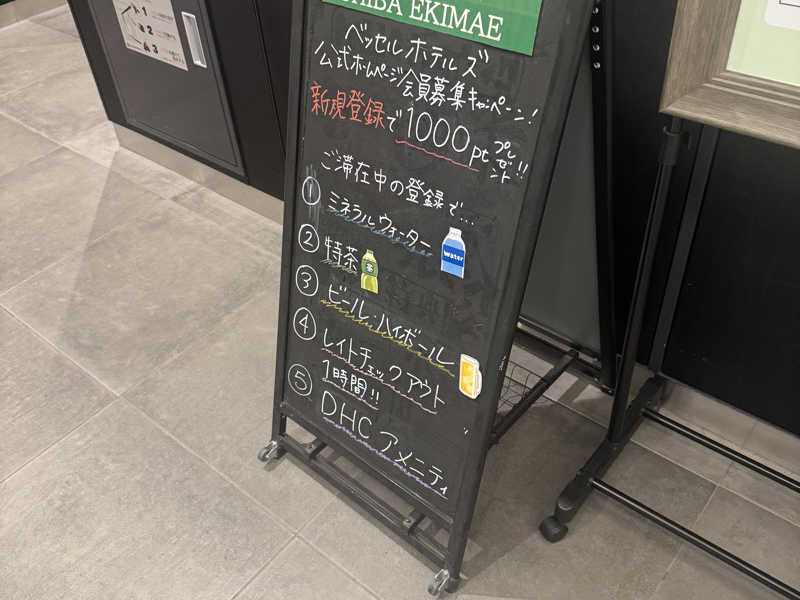 CHIBA EKIMAE
ベッセルホテルズ
公式ホームページ会員募集キャンペーン!
新規登録で1000pt プレゼント!!
ご滞在中の登録で...
① ミネラルウォーター
water
② 特茶
茶
③ ビール・ハイボール
④ レイトチェックアウト
1時間!!
⑤ DHC アメニティ
1
2
3